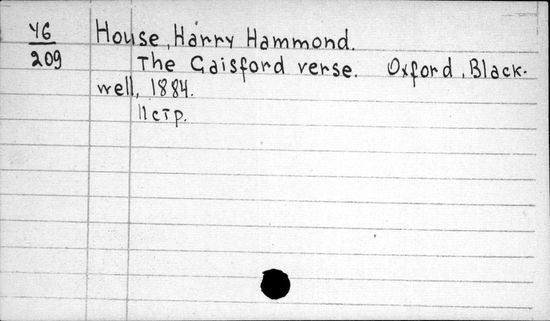 Y6
209
House, Harry Hammond.
The Gaisford verse. Oxford, Black-
well, 1884.
11 стр.